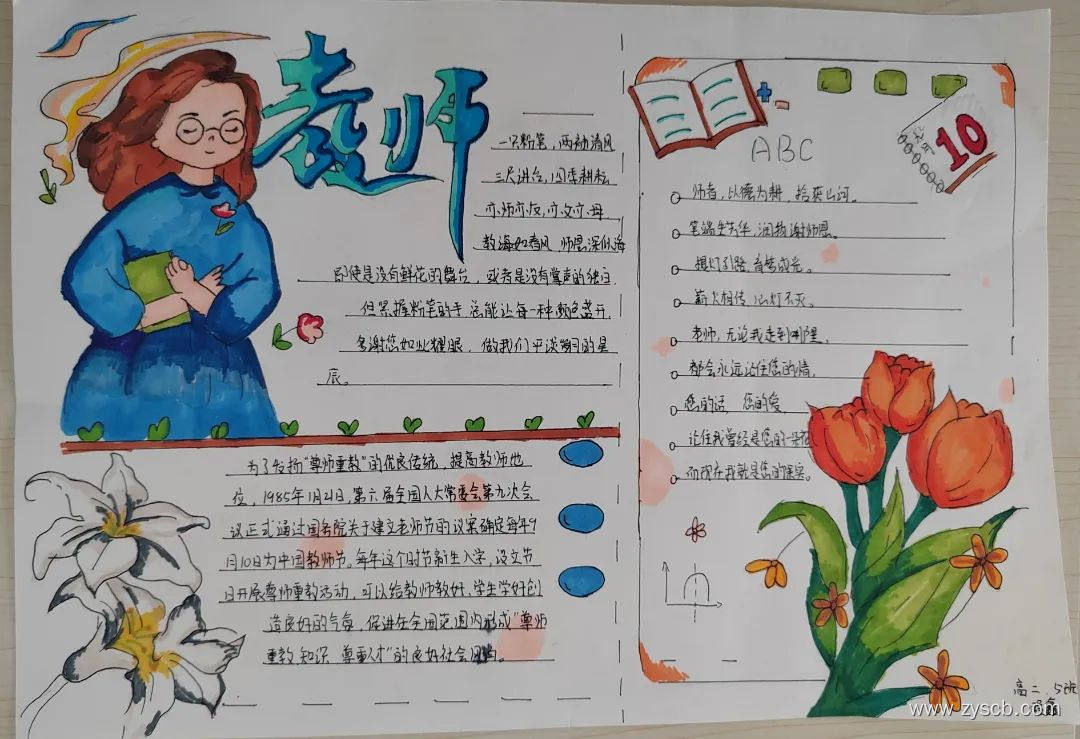 老师
一只粉笔，两袖清风
三尺讲台，四季耕耘
亦师亦友，亦父亦母
教海如春风，师恩深似海
即使是没有鲜花的舞台，或者是没有掌声的独白，
但紧握粉笔的手总能让每一种颜色盛开，
多谢您如此耀眼，做我们平淡岁月的星
辰。
为了发扬“尊师重教”的优良传统，提高教师地
位，1985年1月21日，第六届全国人大常委会第九次会
议正式通过国务院关于建立老师节的议案确定每年9
月10日为中国教师节。每年这个时节新生入学，设立节
日开展尊师重教活动，可以给教师教好，学生学好创
造良好的气氛，促进在全国范围内形成“尊师
重教 知识 尊重人才”的良好社会风尚。
+ -
10
ABC
师者，以德为耕，拾英山河。
笔端生芳华，润物谢师恩。
提灯引路，育梦成光。
薪火相传，心灯不灭。
老师，无论我走到哪里，
都会永远记住您的情，
您的话 您的爱，
论住我曾经是您的一朵花
而现在我就是您的果实。
高二、5班
www.zyscb.com